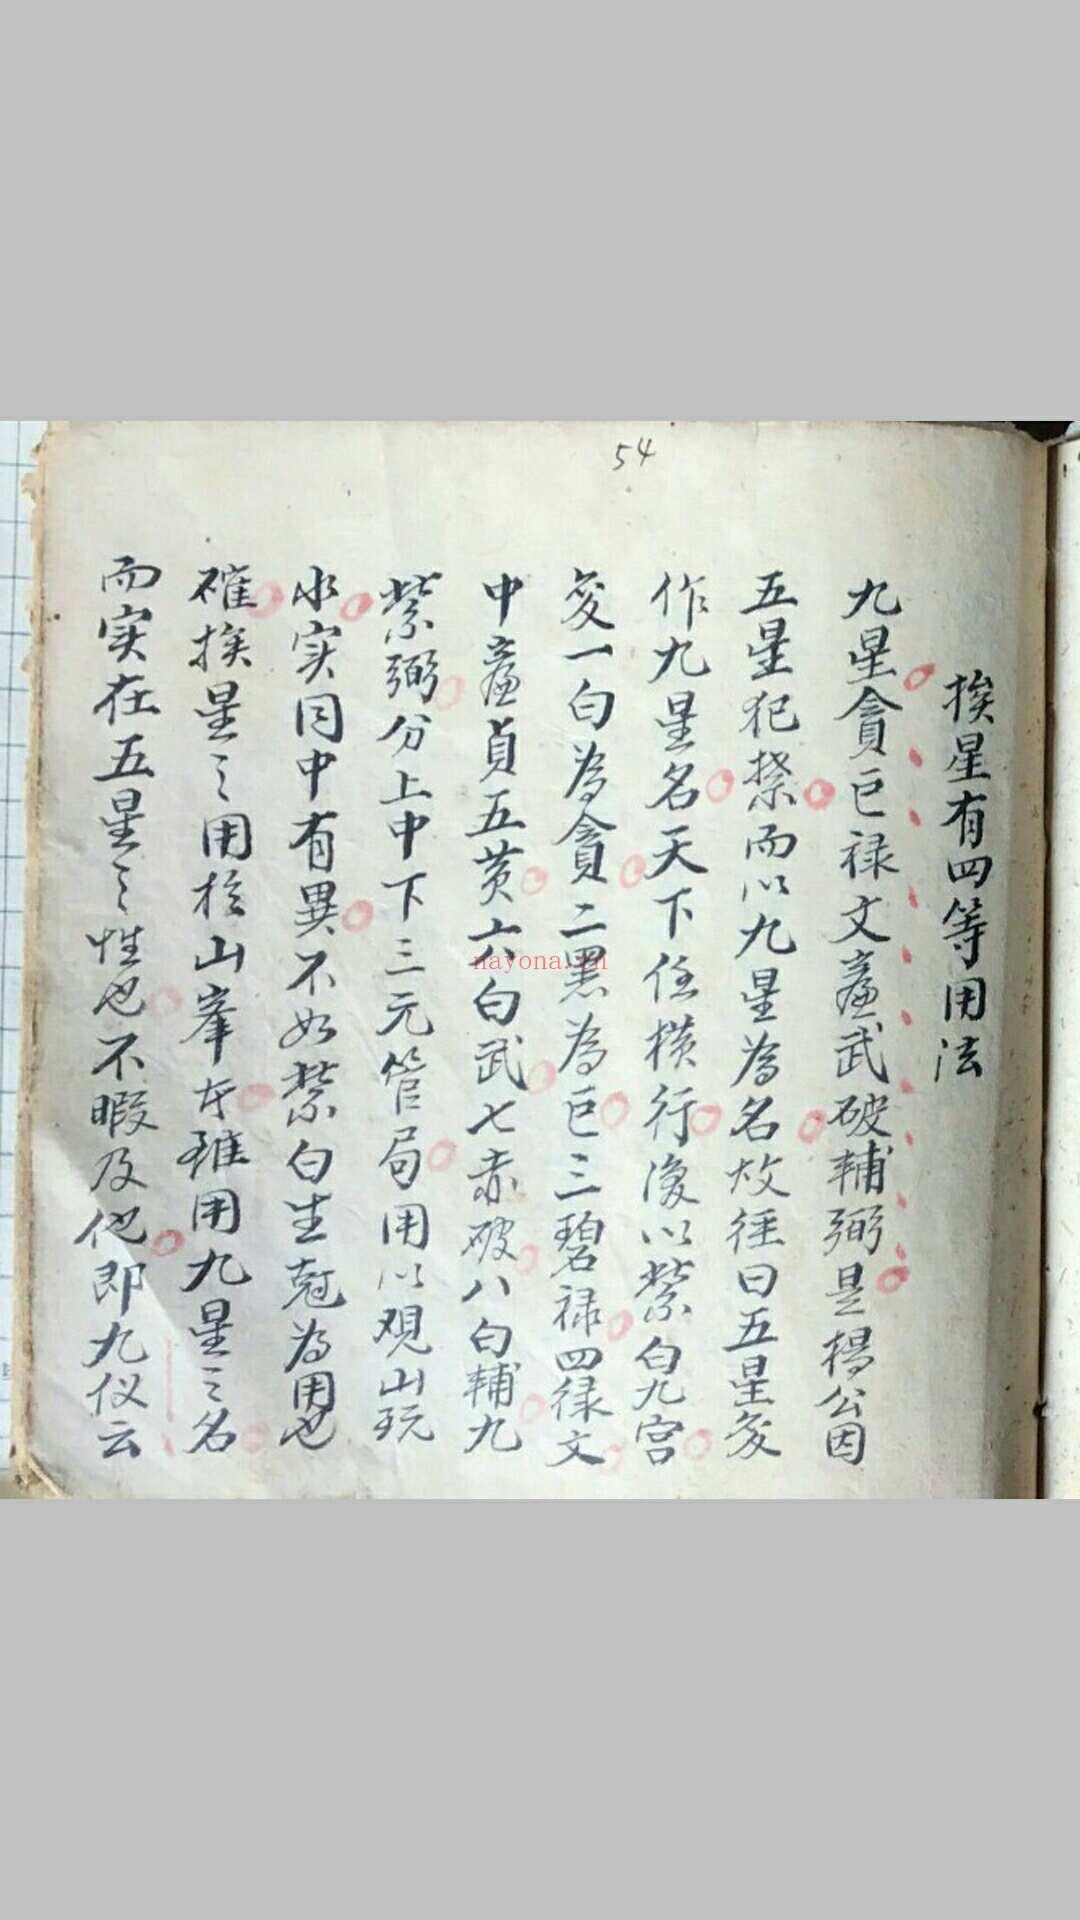 54
挨星有四等用法
九星貪巨禄文廉武破輔弼是楊公因
五星犯禁而以九星為名故徑曰五星変
作九星名天下任横行後以紫白九宫
変一白為貪二黑為巨三碧禄四禄文
中廉貞五黄六白武七赤破八白輔九
紫弼分上中下三元管局用以观山玩
水实同中有異不如紫白生尅為用也
確挨星之用於山峯在雖用九星之名
而实在五星之性也不暇及他即九仪云
nayona.cn